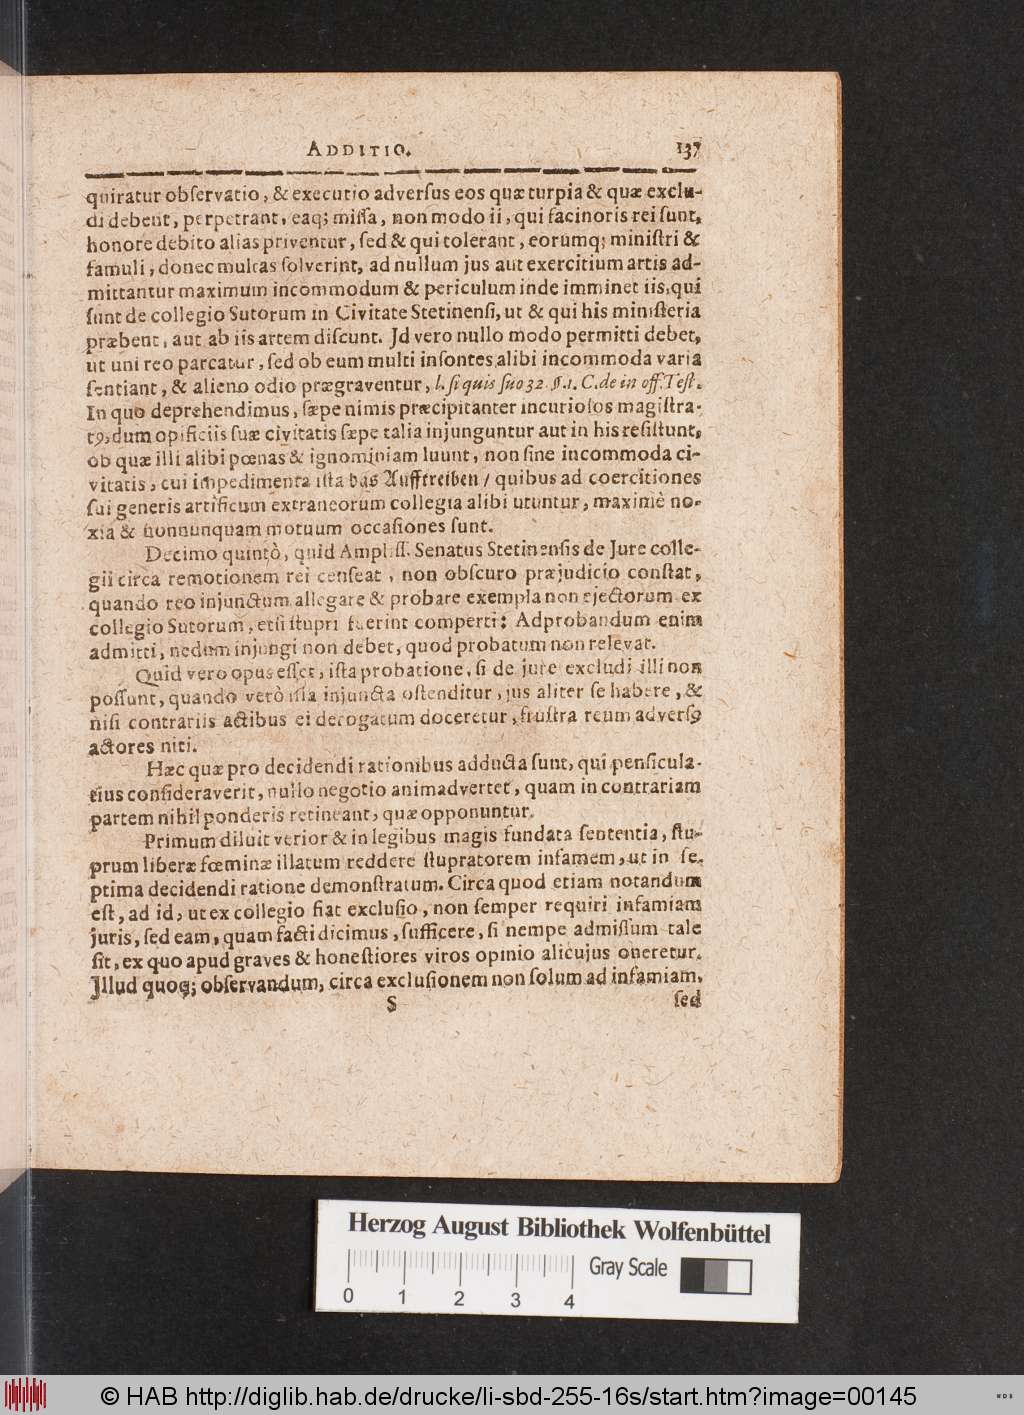 ADDITIO. 137
quiratur obſervatio, & executio adverſus eos quæ turpia & quæ exclu-
di debent, perpetrant, eaq; miſſa, non modo ii, qui facinoris rei ſunt,
honore debito alias priventur, ſed & qui tolerant, eorumq; miniſtri &
famuli, donec mulctas ſolverint, ad nullum jus aut exercitium artis ad-
mittantur maximum incommodum & periculum inde imminet iis, qui
ſunt de collegio Sutorum in Civitate Stetinenſi, ut & qui his miniſteria
præbent, aut ab iis artem diſcunt. Jd vero nullo modo permitti debet,
ut uni reo parcatur, ſed ob eum multi inſontes alibi incommoda varia
ſentiant, & alieno odio prægraventur, l. ſi quis ſuo 32. §. 1. C. de in off. Teſt.
In quo deprehendimus, ſæpe nimis præcipitanter incurioſos magiſtra-
tꝰ, dum opificiis ſuæ civitatis ſæpe talia injunguntur aut in his reſiſtunt,
ob quæ illi alibi pœnas & ignominiam luunt, non ſine incommoda ci-
vitatis, cui impedimenta iſta das Aufftreiben / quibus ad coercitiones
ſui generis artificum extraneorum collegia alibi utuntur, maximè no-
xia & nonnunquam motuum occaſiones ſunt.
Decimo quintò, quid Ampliſſ. Senatus Stetinenſis de Jure colle-
gii circa remotionem rei cenſeat, non obſcuro præjudicio conſtat,
quando reo injunctum allegare & probare exempla non ejectorum ex
collegio Sutorum, etũ ſtupri fuerint comperti: Adprobandum enim
admitti, nedum injungi non debet, quod probatum non relevat.
Quid vero opus eſſet, iſta probatione, ſi de jure excludi illi non
poſſunt, quando verò iſſa injuncta oſtenditur, jus aliter ſe habere, &
niſi contrariis actibus ei derogatum doceretur, fruſtra reum adverſꝰ
actores niti.
Hæc quæ pro decidendi rationibus adducta ſunt, qui penſicula-
tius conſideraverit, nullo negotio animadvertet, quam in contrariam
partem nihil ponderis retineant, quæ opponuntur.
Primum diluit verior & in legibus magis fundata ſententia, ſtu-
prum liberæ fœminæ illatum reddere ſtupratorem infamem, ut in ſe-
ptima decidendi ratione demonſtratum. Circa quod etiam notandum
eſt, ad id, ut ex collegio fiat excluſio, non ſemper requiri infamiam
juris, ſed eam, quam facti dicimus, ſufficere, ſi nempe admiſſum tale
ſit, ex quo apud graves & honeſtiores viros opinio alicujus oneretur.
Jllud quoq; obſervandum, circa excluſionem non ſolum ad infamiam,
S ſed
Herzog August Bibliothek Wolfenbüttel
Gray Scale
0 1 2 3 4
© HAB http://diglib.hab.de/drucke/li-sbd-255-16s/start.htm?image=00145
WDB